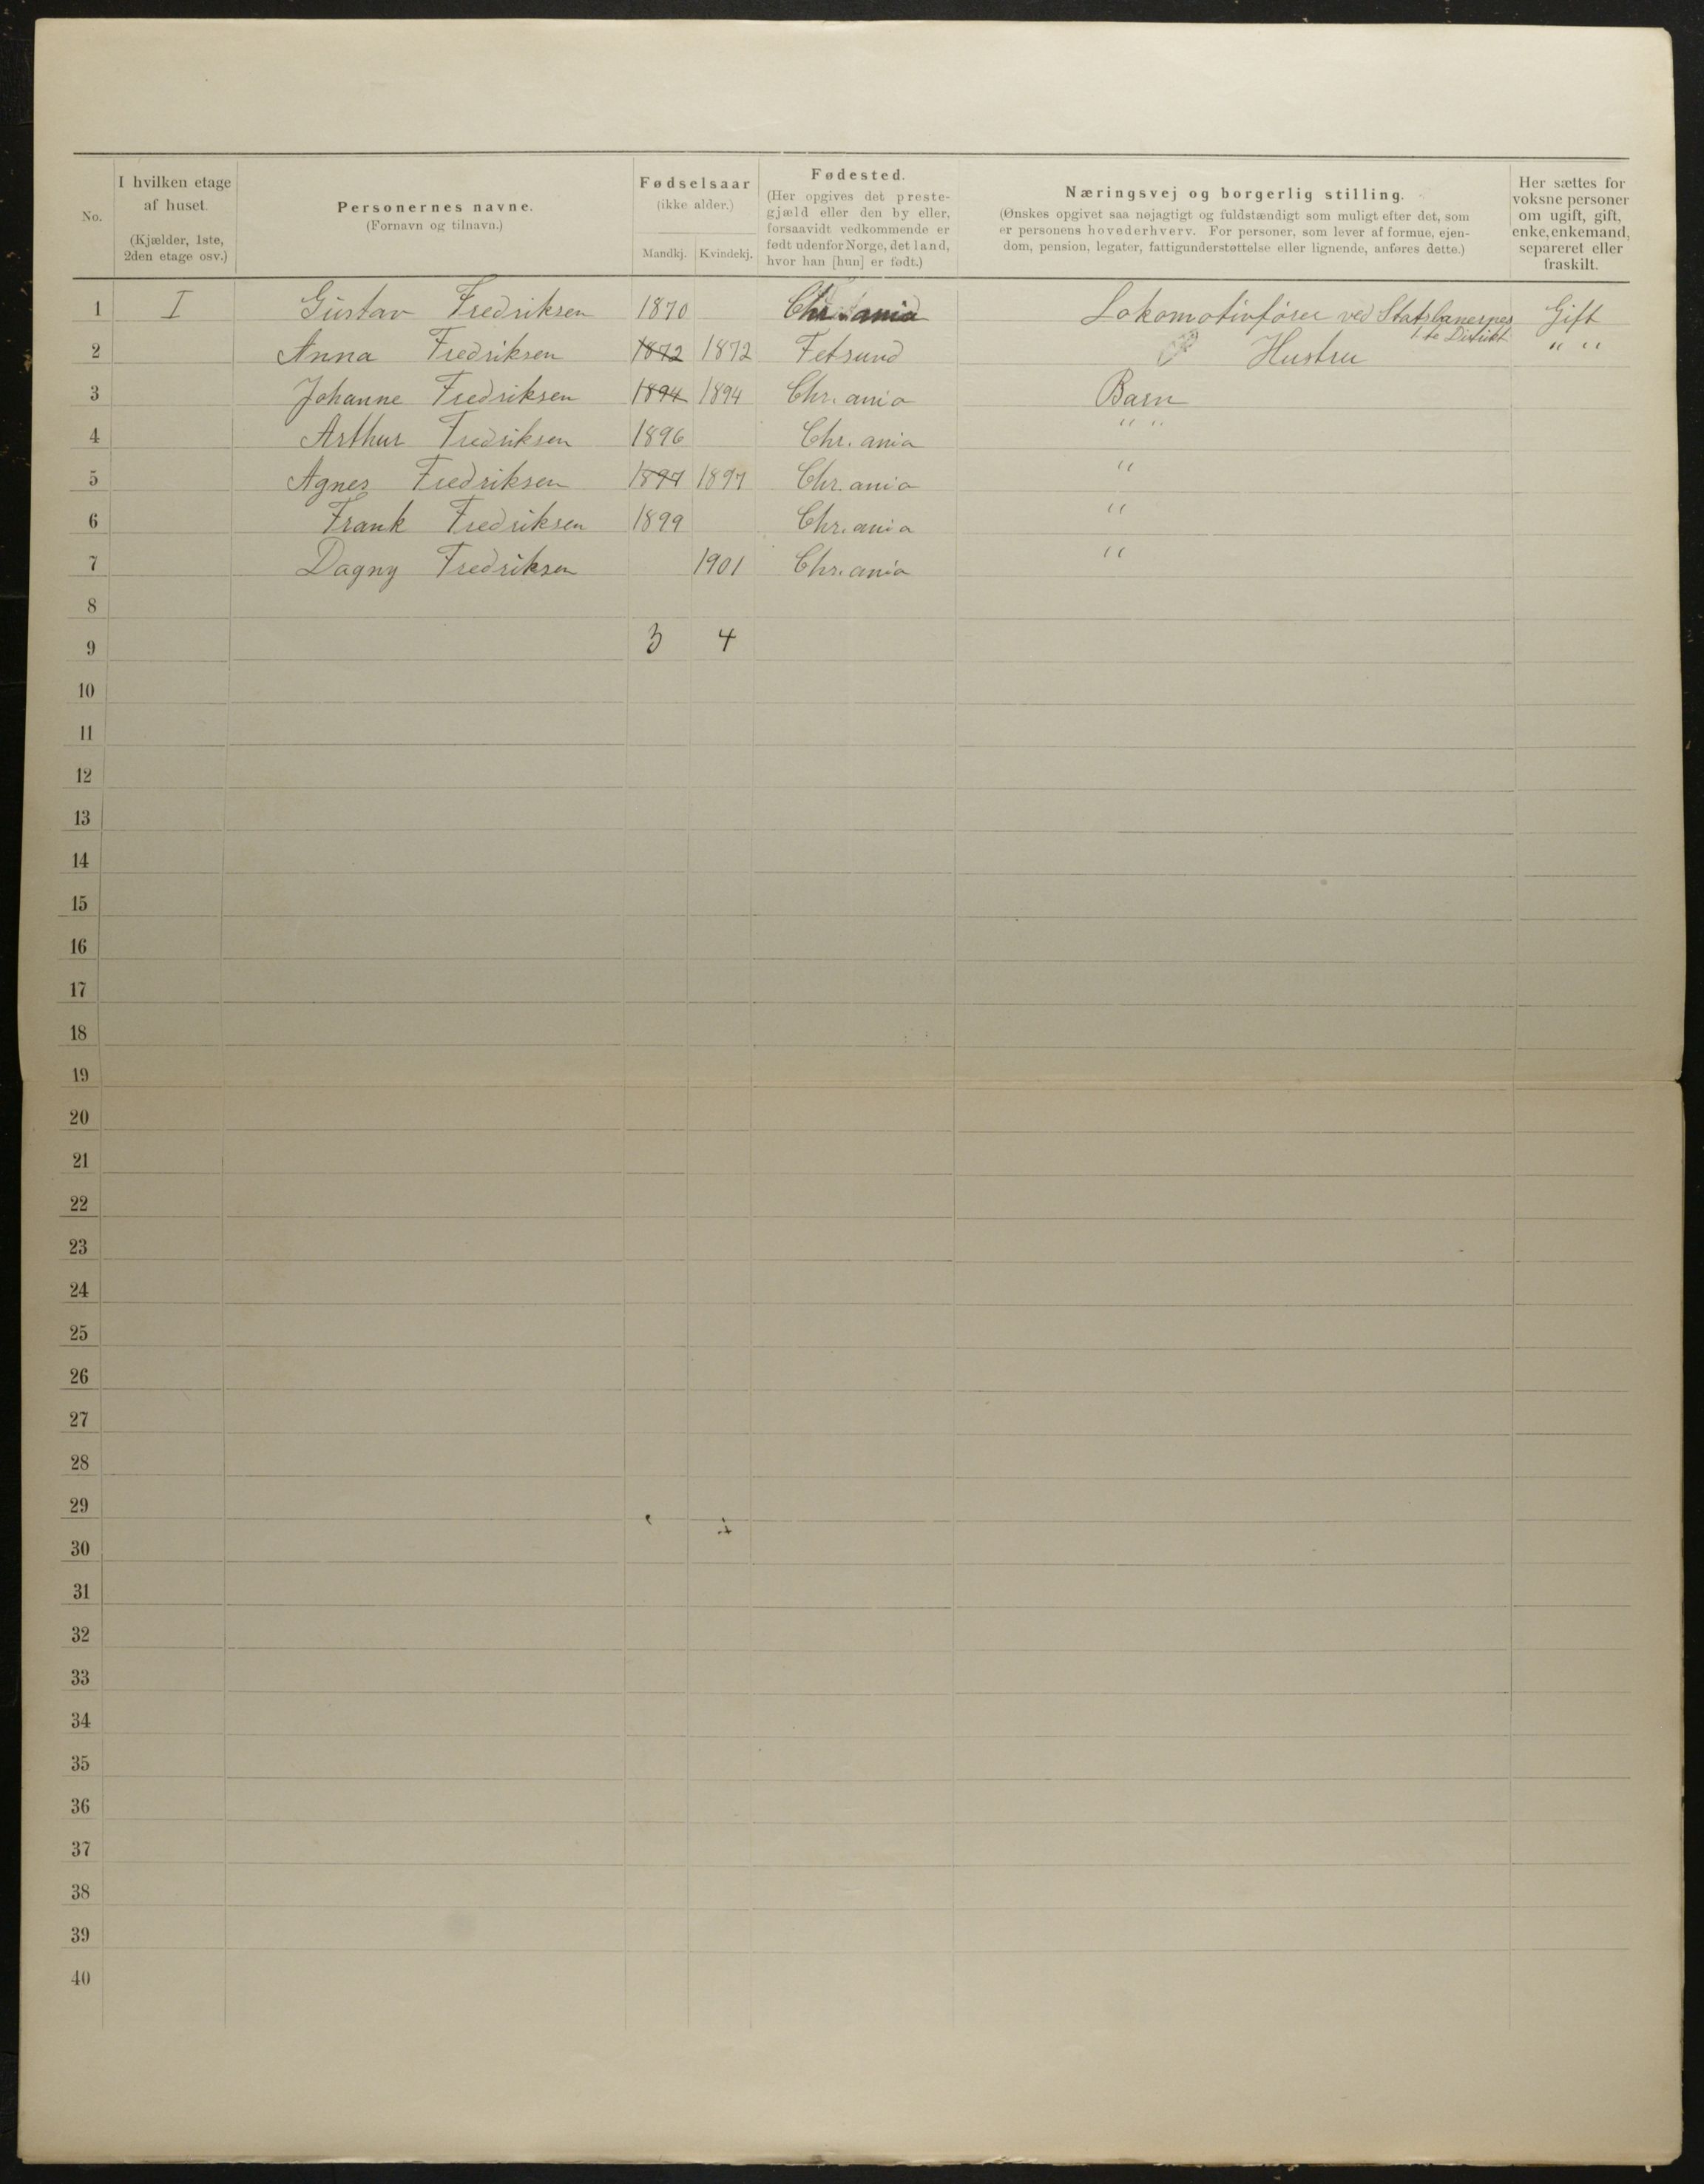 No.
I hvilken etage
af huset.
(Kjælder, 1ste,
2den etage osv.)
Personernes navne.
(Fornavn og tilnavn.)
Fødselsaar
(ikke alder.)
Mandkj. Kvindekj.
Fødested.
(Her opgives det preste-
gjæld eller den by eller,
forsaavidt vedkommende er
født udenfor Norge, det land,
hvor han [hun] er født.)
Næringsvej og borgerlig stilling.
(Ønskes opgivet saa nøjagtigt og fuldstændigt som muligt efter det, som
er personens hovederhverv. For personer, som lever af formue, ejen-
dom, pension, legater, fattigunderstøttelse eller lignende, anføres dette.)
Her sættes for
voksne personer
om ugift, gift,
enke, enkemand,
separeret eller
fraskilt.
1 I Gustav Fredriksen 1870 Chr.ania Lokomotivfører ved Statsbanernes Gift
1.te Distrikt
2 Anna Fredriksen 1872 1872 Fetsund Hustru " "
3 Johanne Fredriksen 1894 1894 Chr.ania Barn
4 Arthur Fredriksen 1896 Chr.ania " "
5 Agnes Fredriksen 1897 1897 Chr.ania "
6 Frank Fredriksen 1899 Chr.ania "
7 Dagny Fredriksen 1901 Chr.ania "
8
9 3 4
10
11
12
13
14
15
16
17
18
19
20
21
22
23
24
25
26
27
28
29
30
31
32
33
34
35
36
37
38
39
40